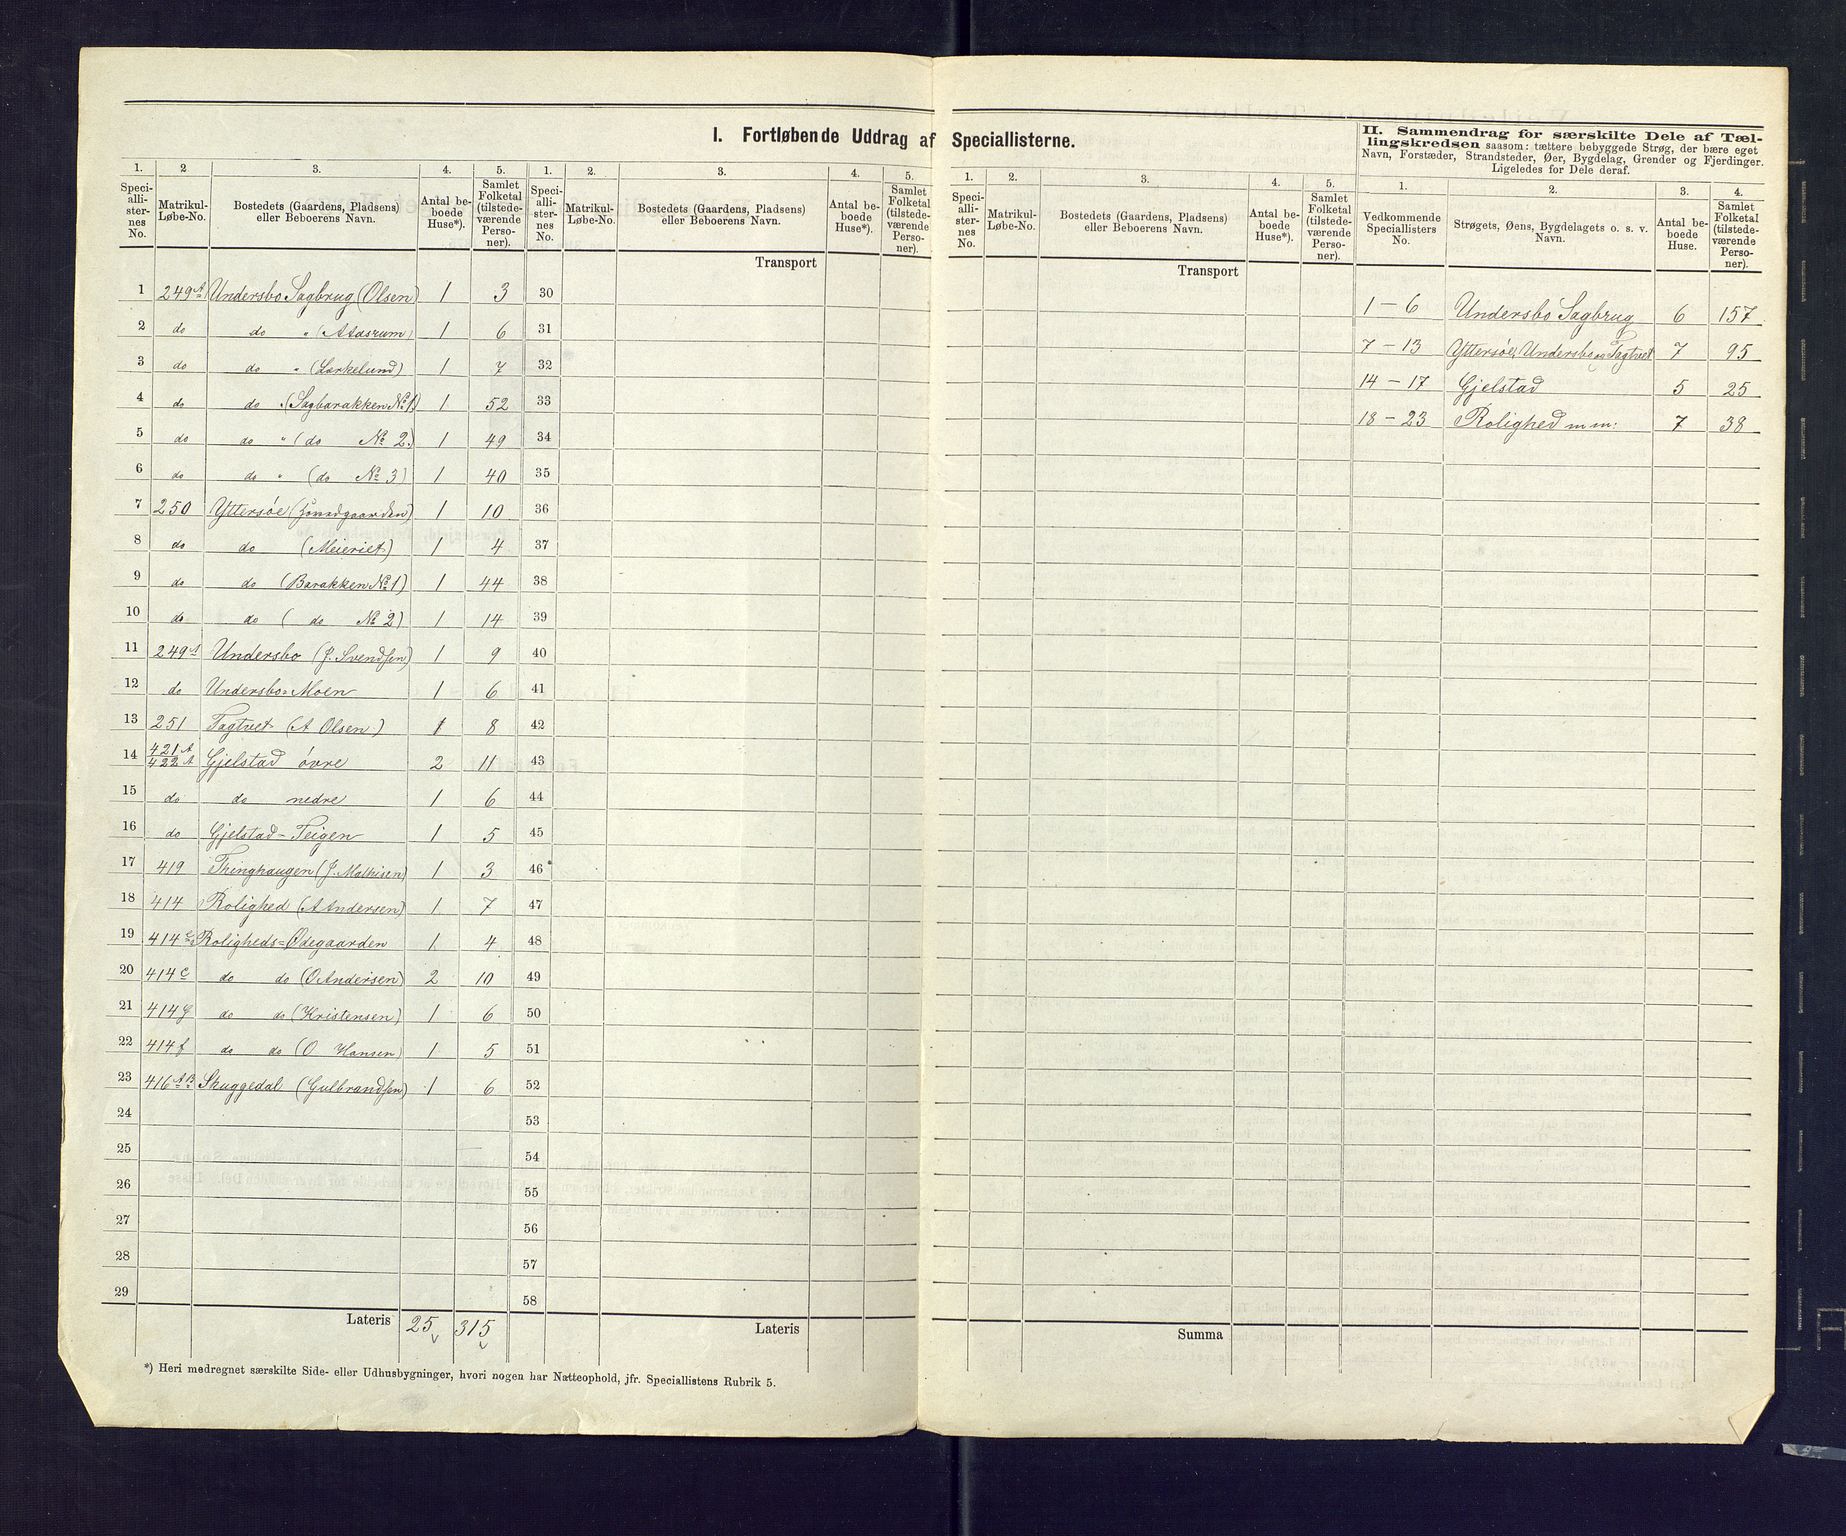 I. Fortløbende Uddrag af Speciallisterne.
1. 2 3. 4. 5.
Speciallisternes No. Matrikul-Løbe-No. Bostedets (Gaardens, Pladsens) eller Beboerens Navn. Antal beboede Huse*). Samlet Folketal (tilstedeværende Personer).
1 249A Undersbo Sagbrug (Olsen) 1 3
2 do do " 1 6
3 do do " (Lerkelund) 1 7
4 do do " (Sagbarakken No 1) 1 52
5 do do " (do No 2) 1 49
6 do do " (do No 3) 1 40
7 250 Yttersøe (Hovedgaarden) 1 10
8 do do (Meieriet) 1 4
9 do do (Barakken No 1) 1 44
10 do do ( do No 2) 1 14
11 249A Undersbo (J. Svendsen) 1 9
12 do Undersbo=Moen 1 6
13 251 Fagtvet (A Olsen) 1 8
14 421A 422A Gjelstad övre 2 11
15 do do nedre 1 6
16 do Gjelstad-Teigen 1 5
17 419 Thinghaugen (J. Mathisen) 1 3
18 414 Rolighed (A Andersen) 1 7
19 414 Roligheds=Ødegaarden 1 4
20 414c do do (O Andersen) 2 10
21 414 do do (Kristensen) 1 6
22 414f do do (O Hansen) 1 5
23 416AB Skuggedal (Gulbrandsen) 1 6
24
25
26
27
28
29
Lateris 25 315
*) Heri medregnet særskilte Side- eller Udhusbygninger, hvori nogen har Natteophold, jfr. Speciallistens Rubrik 5.
1. 2. 3. 4. 5.
Speciallisternes No. Matrikul-Løbe-No. Bostedets (Gaardens, Pladsens) eller Beboerens Navn. Antal beboede Huse*). Samlet Folketal (tilstedeværende Personer).
Transport
30
31
32
33
34
35
36
37
38
39
40
41
42
43
44
45
46
47
48
49
50
51
52
53
54
55
56
57
58
Lateris
1. 2. 3. 4. 5.
Speciallisternes No. Matrikul-Løbe-No. Bostedets (Gaardens, Pladsens) eller Beboerens Navn. Antal beboede Huse*). Samlet Folketal (tilstedeværende Personer).
Transport
Summa
II. Sammendrag for særskilte Dele af Tællingskredsen saasom: tættere bebyggede Strøg, der bære eget Navn, Forstæder, Strandsteder, Øer, Bygdelag, Grender og Fjerdinger. Ligeledes for Dele deraf.
1. 2. 3. 4.
Vedkommende Speciallisters No. Strøgets, Øens, Bygdelagets o. s. v. Navn. Antal beboede Huse. Samlet Folketal (tilstedeværende Personer).
1 - 6 Undersbo Sagbrug 6 157
7 - 13 Yttersøe, Undersbo og Fagtvet 7 95
14 - 17 Gjelstad 5 25
18 - 23 Rolighed m m: 7 38